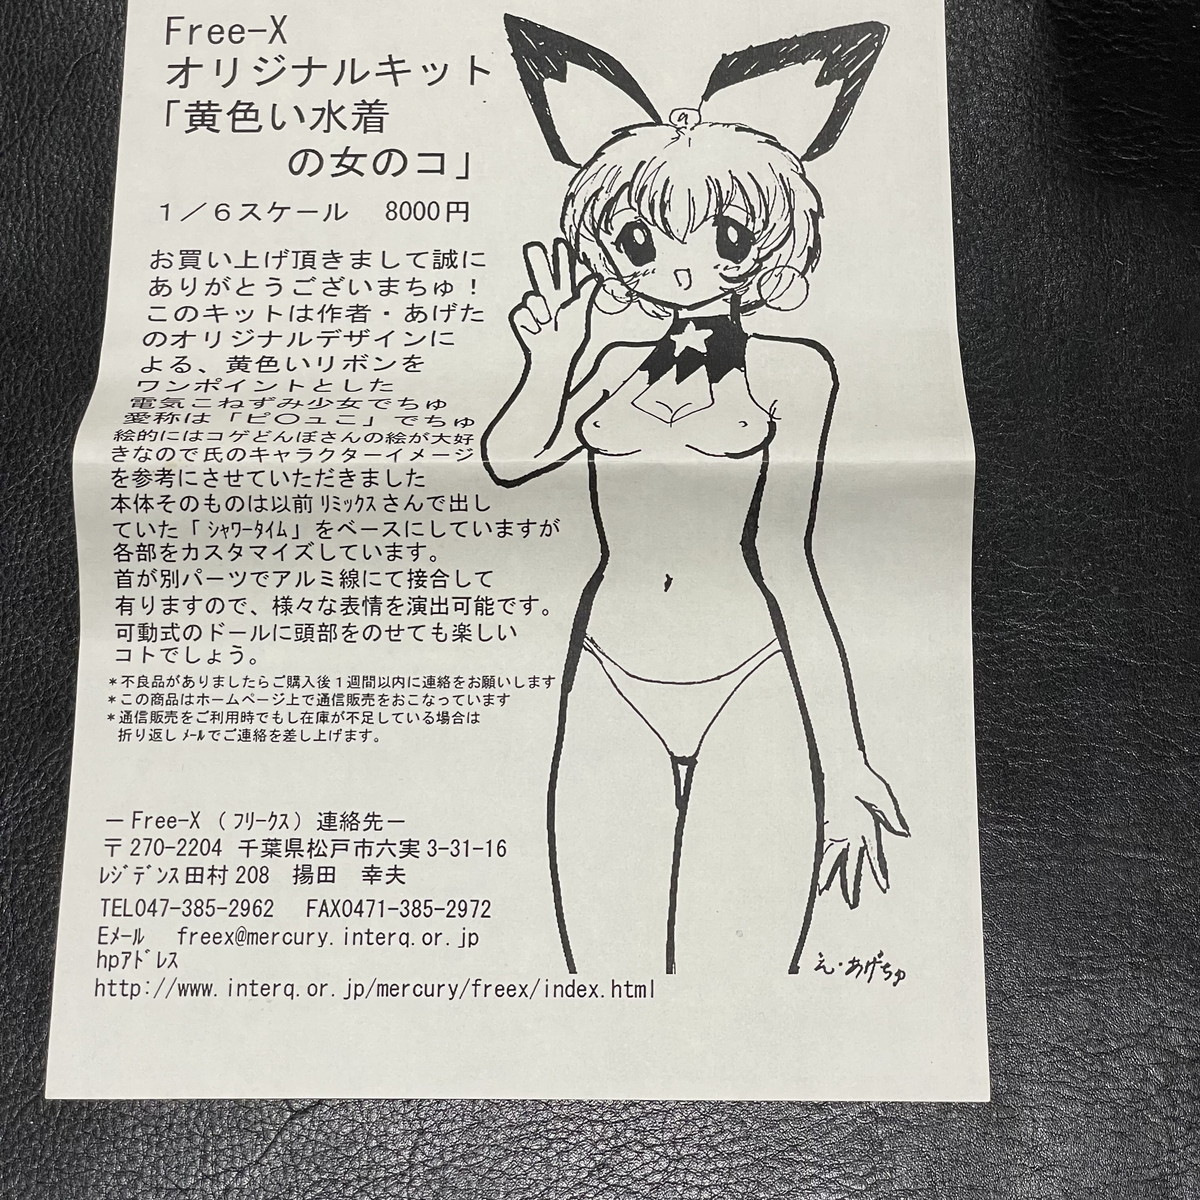 Free-X
オリジナルキット
「黄色い水着
の女のコ」
1／6スケール　8000円
お買い上げ頂きまして誠に
ありがとうございまちゅ！
このキットは作者・あげた
のオリジナルデザインに
よる、黄色いリボンを
ワンポイントとした
電気こねずみ少女でちゅ
愛称は「ピ〇ュこ」でちゅ
絵的にはコゲどんぼさんの絵が大好
きなので氏のキャラクターイメージ
を参考にさせていただきました
本体そのものは以前ﾘﾐｯｸｽさんで出し
ていた「ｼｬﾜｰﾀｲﾑ」をベースにしていますが
各部をカスタマイズしています。
首が別パーツでアルミ線にて接合して
有りますので、様々な表情を演出可能です。
可動式のドールに頭部をのせても楽しい
コトでしょう。
＊不良品がありましたらご購入後1週間以内に連絡をお願いします
＊この商品はホームページ上で通信販売をおこなっています
＊通信販売をご利用時でもし在庫が不足している場合は
折り返しﾒｰﾙでご連絡を差し上げます。
－Free-X（ﾌﾘｰｸｽ）連絡先－
〒270-2204 千葉県松戸市六実3-31-16
ﾚｼﾞﾃﾞﾝｽ田村208　揚田　幸夫
TEL047-385-2962　FAX0471-385-2972
Eﾒｰﾙ　freex@mercury.interq.or.jp
hpｱﾄﾞﾚｽ
http://www.interq.or.jp/mercury/freex/index.html
え・あげちゅ